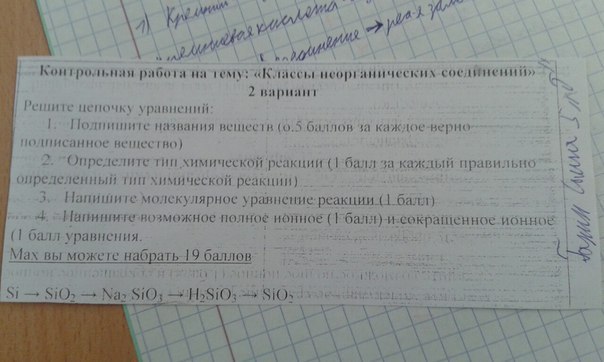 1) Кремний
кислота
соединение → реа-я зам
Контрольная работа на тему: «Классы неорганических соединений»
2 вариант
Решите цепочку уравнений:
1. Подпишите названия веществ (о.5 баллов за каждое верно
подписанное вещество)
2. Определите тип химической реакции (1 балл за каждый правильно
определенный тип химической реакции)
3. Напишите молекулярное уравнение реакции (1 балл)
4. Напишите возможное полное ионное (1 балл) и сокращенное ионное
(1 балл уравнения.
Мах вы можете набрать 19 баллов
Si → SiO₂ → Na₂ SiO₃ → H₂SiO₃ → SiO₂